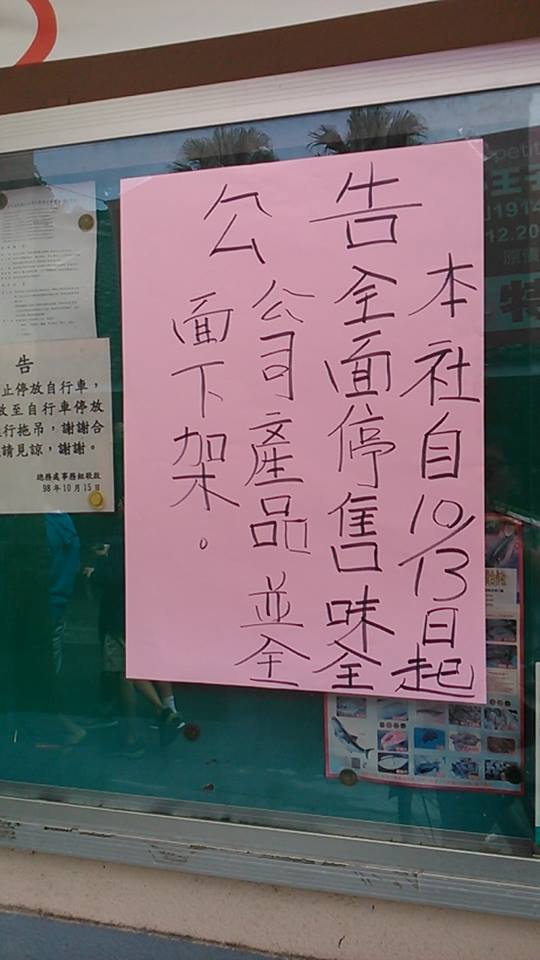 公告
本社自10/13日起
全面停售味全
公司產品並全
面下架。
告
止停放自行車，
放至自行車停放
行拖吊，謝謝合
請見諒，謝謝。
總務處事務組敬啟
98年10月15日
1914
12.20
特